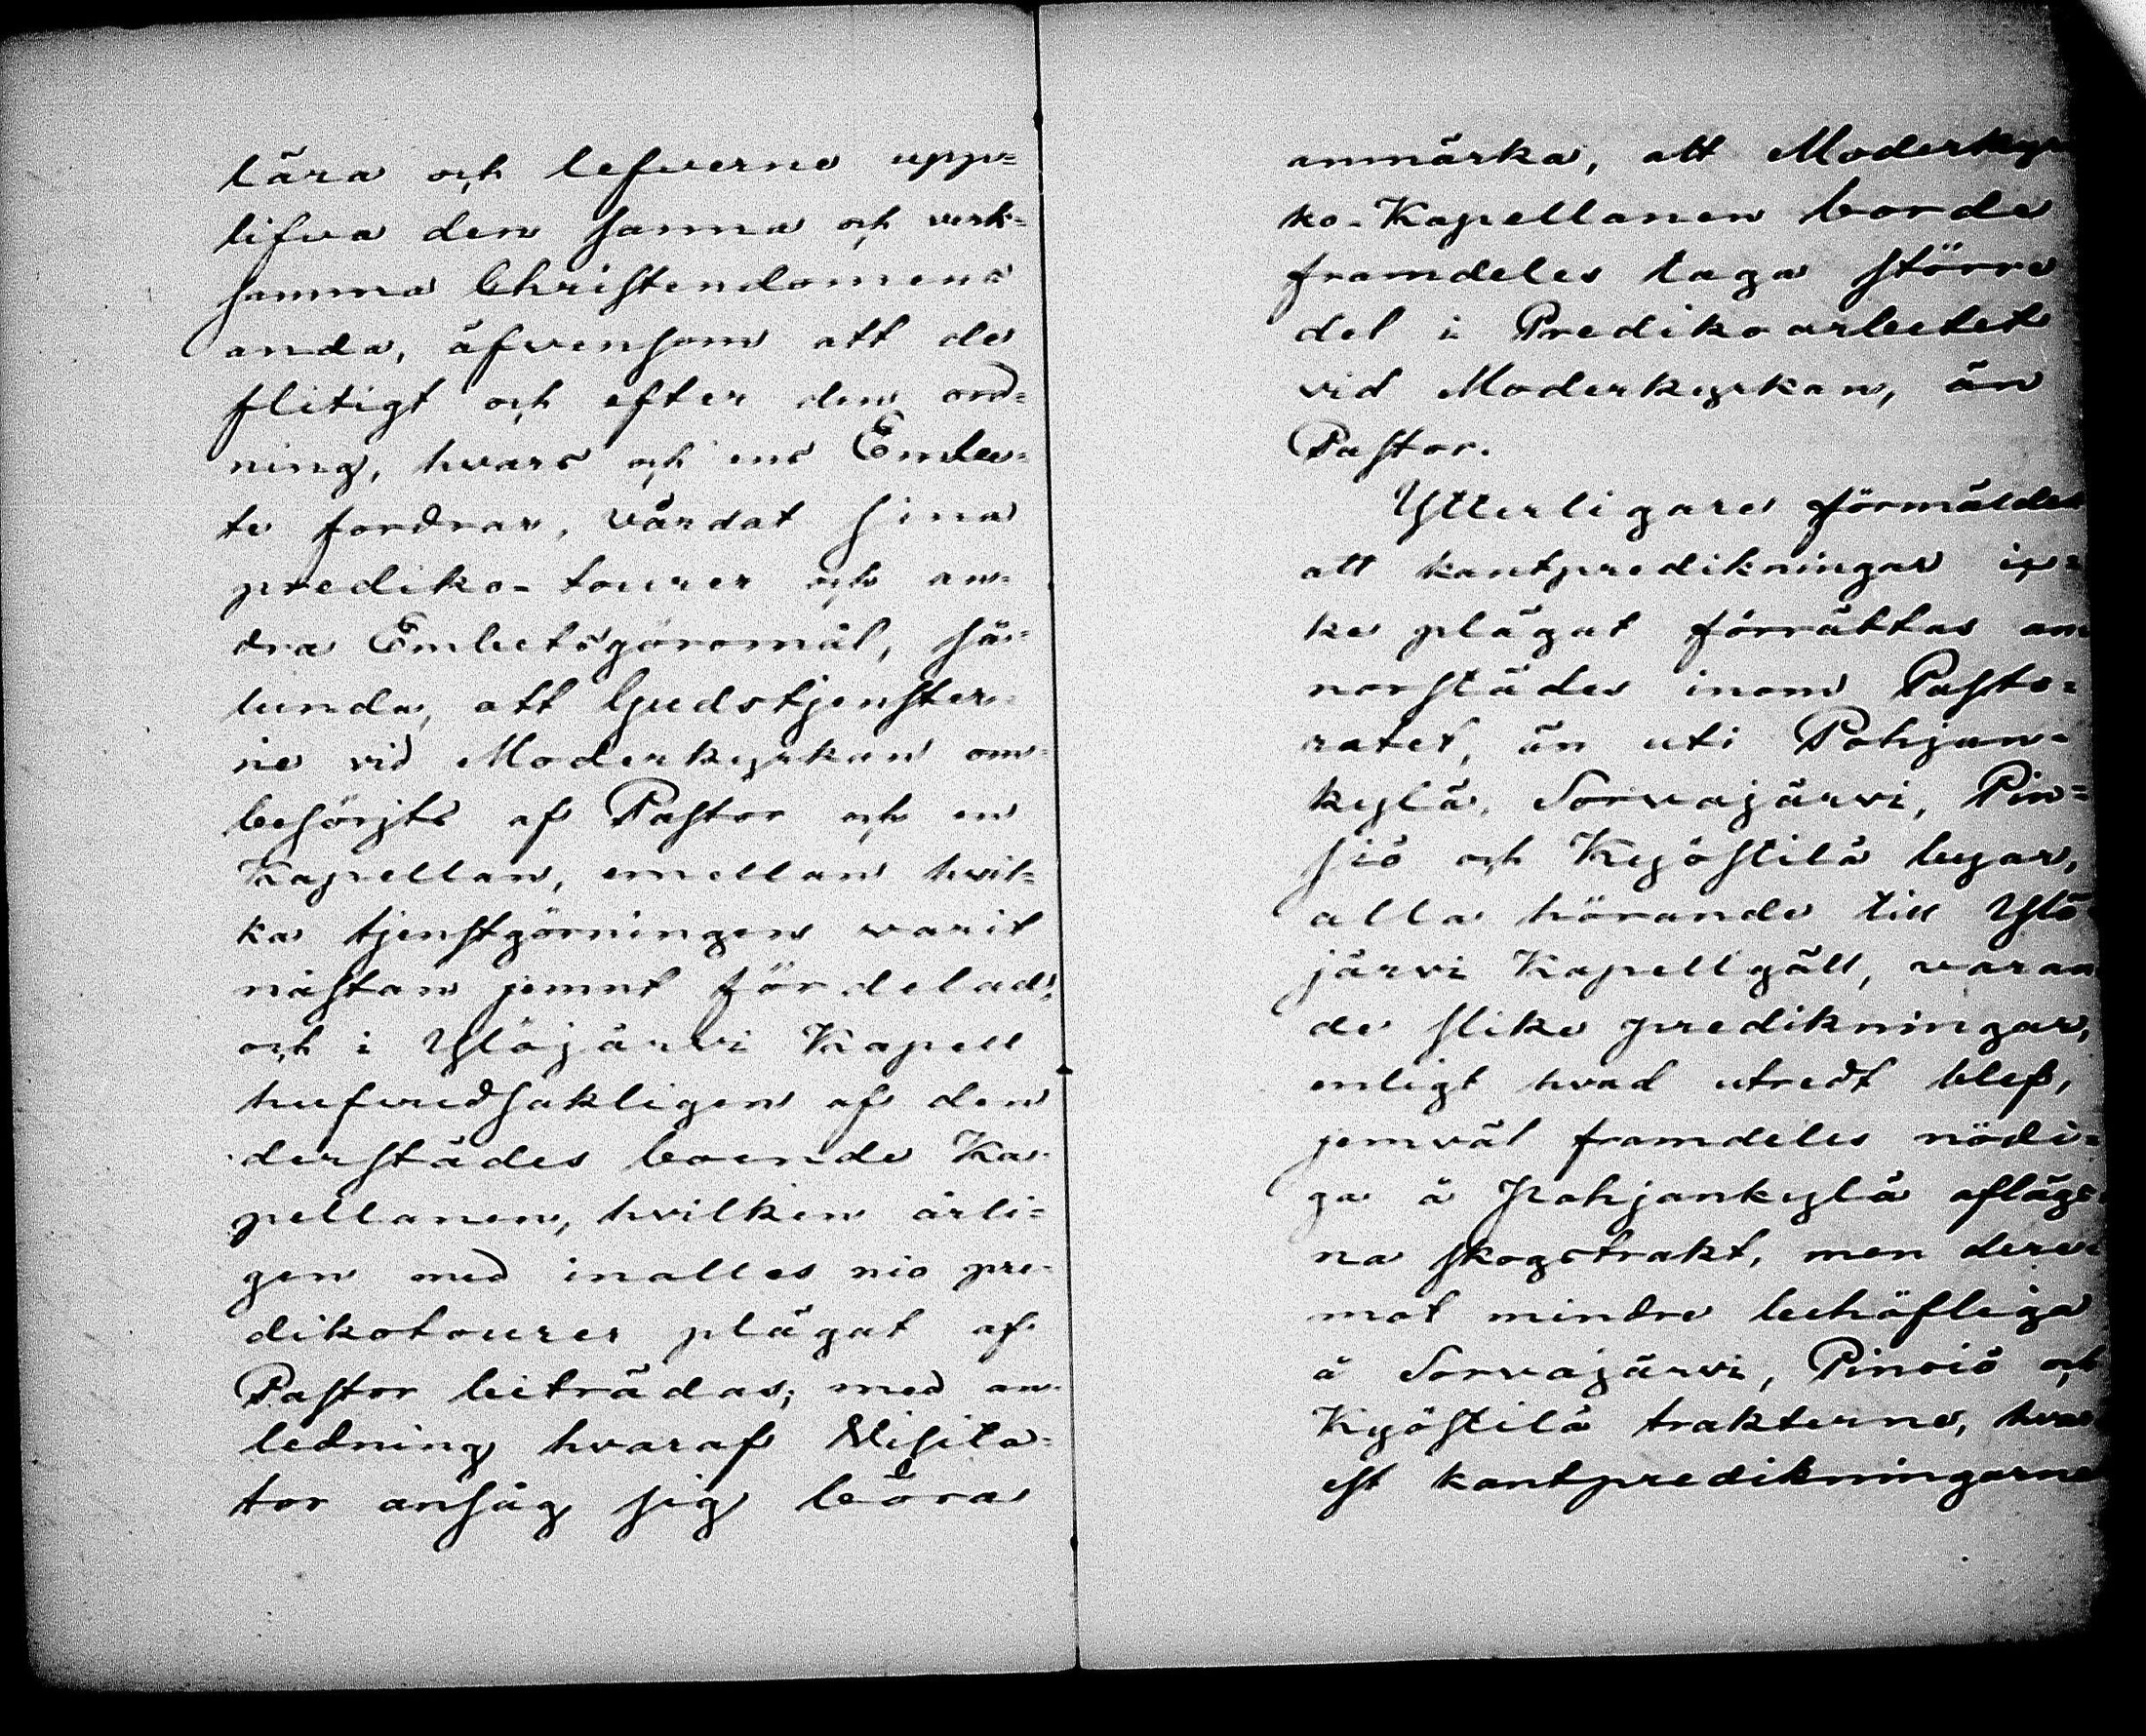 lära och lefverne upp=
lifva den sanna och verk=
samma Christendomens
anda, äfvensom att de
flitigt och efter den ord=
ning, hvars och ens Embe=
te fordrar, vårdat sina
prediko-tourer och an=
dra Embetsgöromål, så=
lunda, att Gudstjenster=
ne vid Moderkyrkan om=
besörjts af Pastor och en
Kapellan, emellan hvil=
ka tjenstgörningen varit
nästan jemnt fördelad,
och i Ylöjärvi Kapell
hufvudsakligen af den
derstädes boende Ka=
pellanen, hvilken årli=
gen med inalles nio pre=
dikotourer plägat af
Pastor biträdas; med an=
ledning hvaraf Visita=
tor ansåg sig böra
anmärka, att Moderkyr
ko-Kapellanen borde
framdeles taga större
del i Predikoarbetet
vid Moderkyrkan, än
Pastor.
Ytterligare förmäldes
att kantpredikningar ic=
ke plägat förrättas an
norstädes inom Pasto=
ratet, än uti Pohjan=
kylä, Sorvajärvi, Pin=
siö och Kyöstilä byar,
alla hörande till Ylö
järvi Kapellgäll, varan
de slike predikningar,
enligt hvad utredt blef,
jemväl framdeles nödi=
ga å Pohjankylä aflägs
na skogstrakt, men dere
mot mindre behöfliga
å Sorvajärvi, Pinsiö och
Kyöstilä trakterne, hvar
est kantpredikningarne